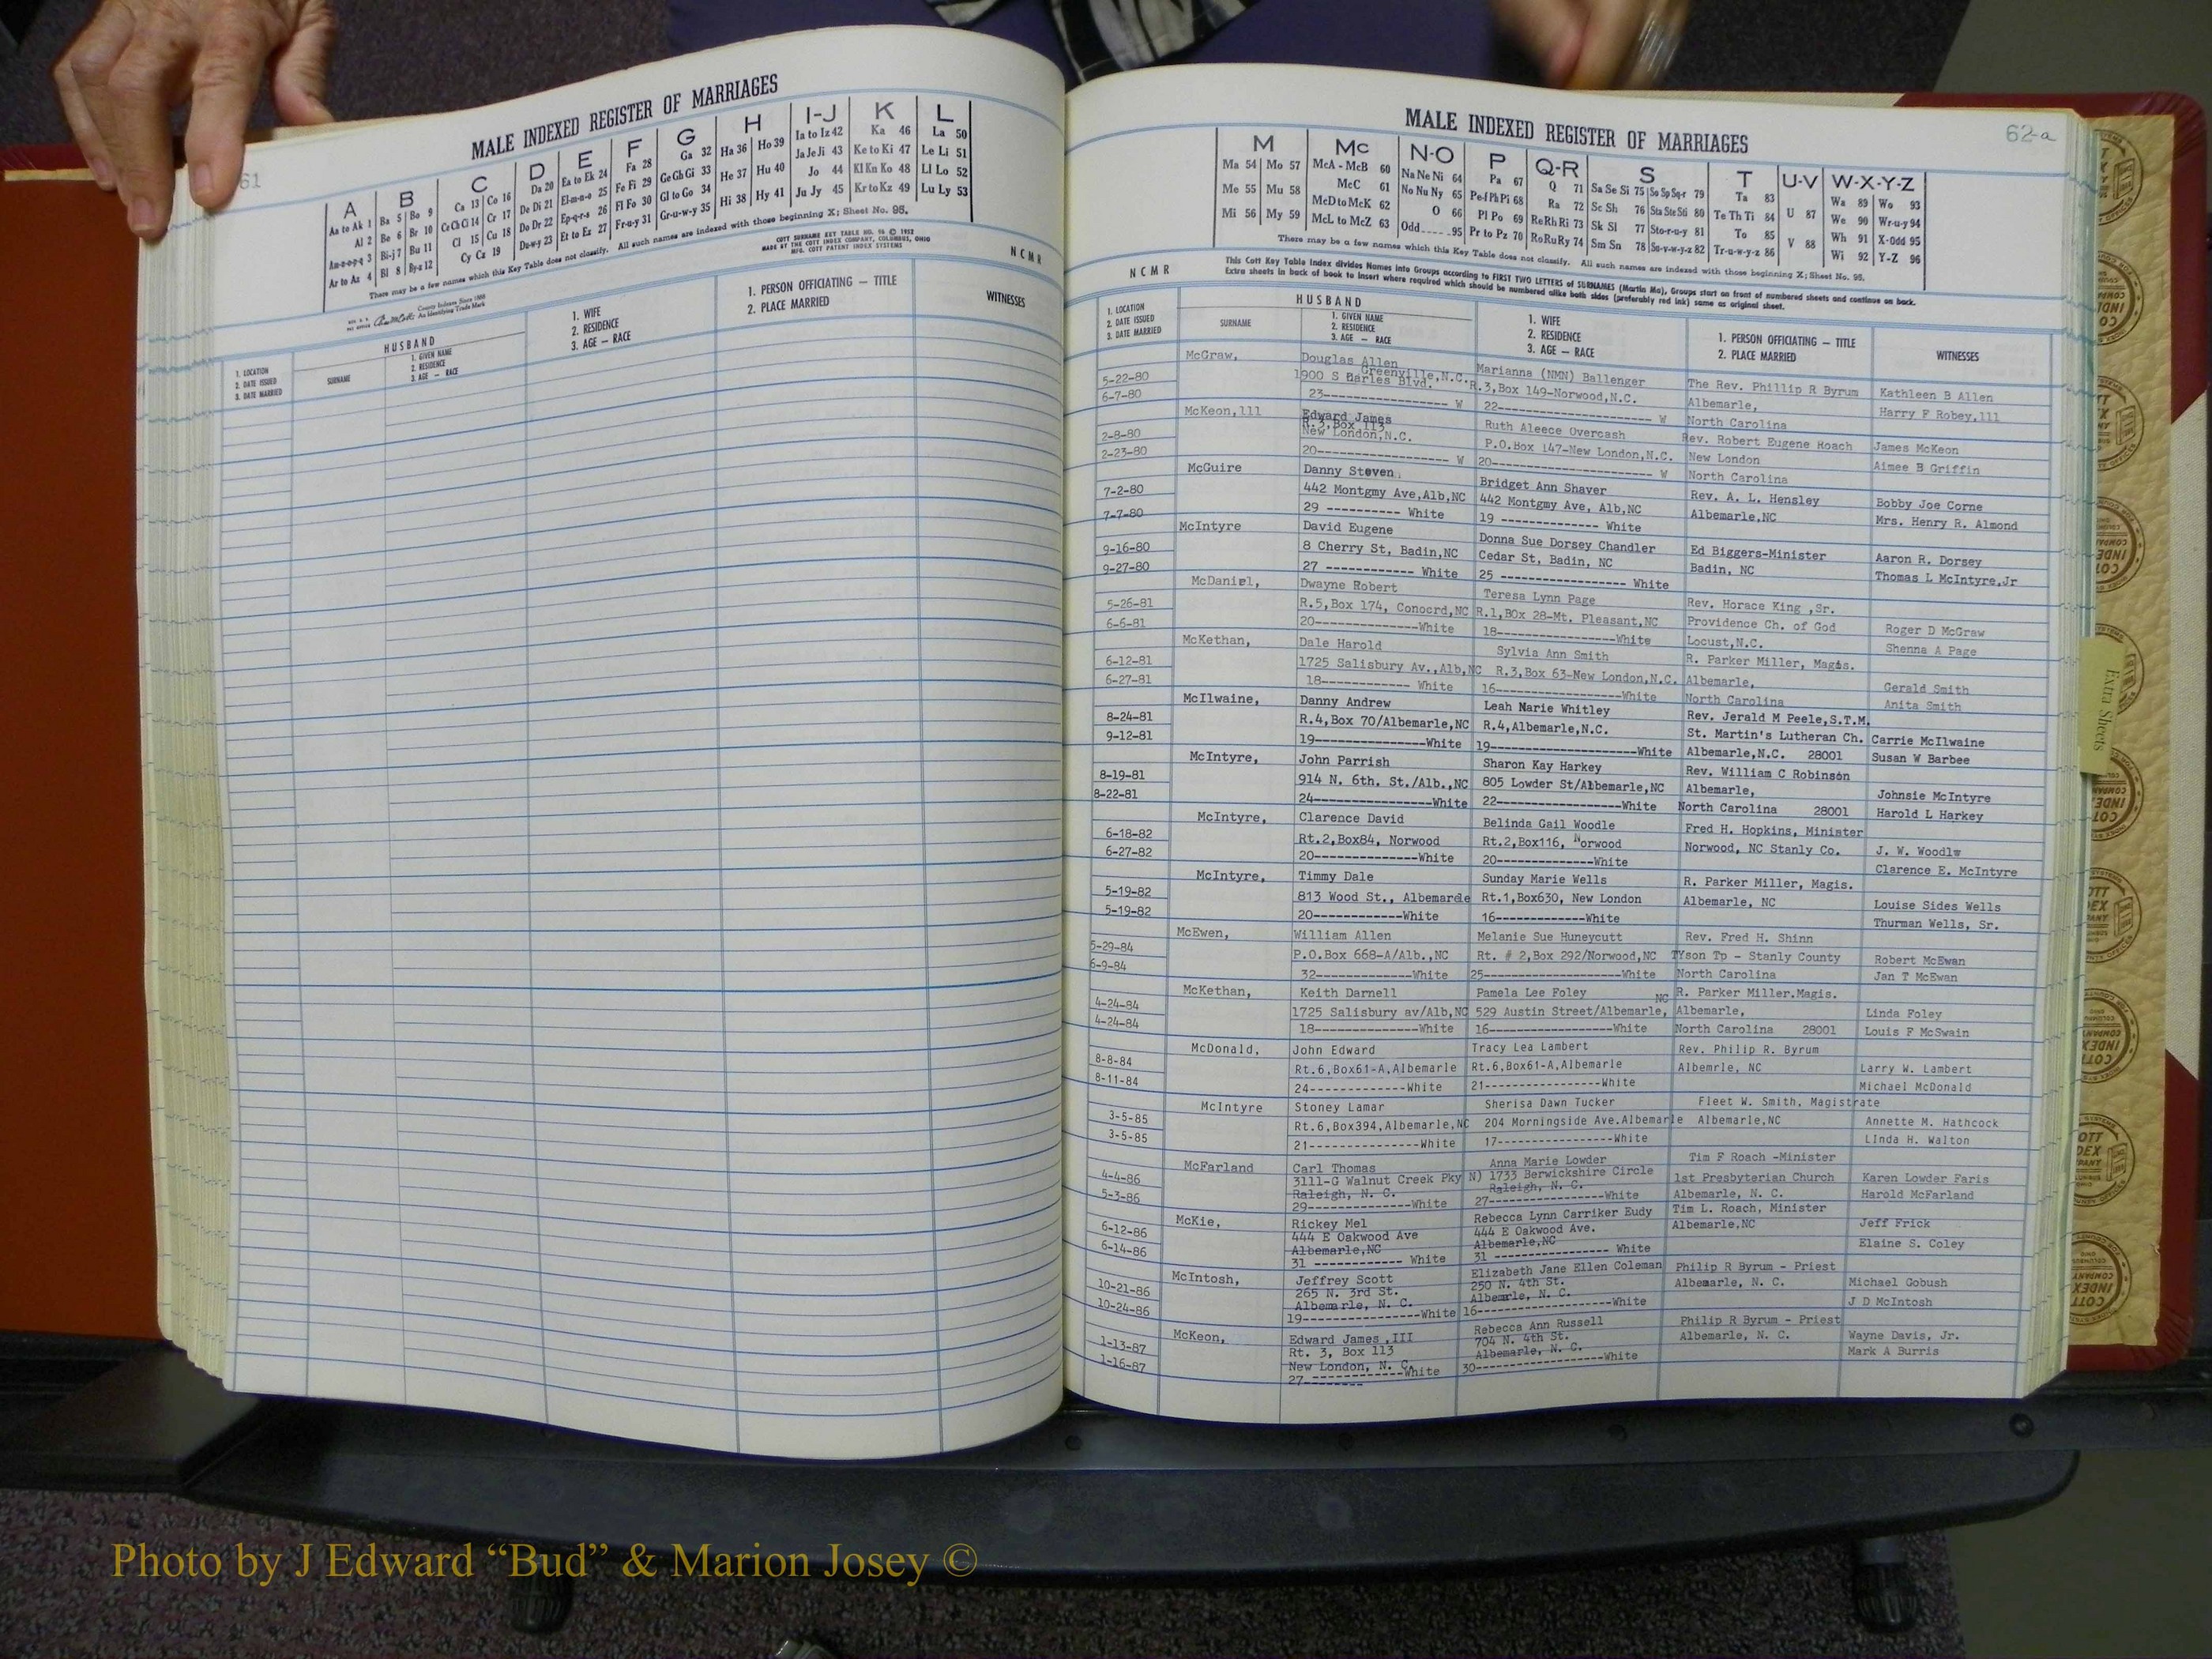 61
MALE INDEXED REGISTER OF MARRIAGES
A B C D E F G H I-J K L
Aa to Ak 1 Ba 5 Bo 9 Ca 13 Co 16 Da 20 Ea to Ek 24 Fa 28 Ga 32 Ha 36 Ho 39 Ia to Iz 42 Ka 46 La 50
Al 2 Be 6 Br 10 Ce Ch Ci 14 Cr 17 De Di 21 El-m-n-o 25 Fe Fi 29 Ge Gh Gi 33 He 37 Hu 40 Ja Je Ji 43 Ke to Ki 47 Le Li 51
An-o-p-q 3 Bi-j 7 Bu 11 Cl 15 Cu 18 Do Dr 22 Ep-q-r-s 26 Fl Fo 30 Gl to Go 34 Hi 38 Hy 41 Jo 44 Kl Kn Ko 48 Ll Lo 52
Ar to Az 4 Bl 8 By-z 12 Cy Cz 19 Du-w-y 23 Et to Ez 27 Fr-u-y 31 Gr-u-w-y 35 Ju Jy 45 Kr to Kz 49 Lu Ly 53
There may be a few names which this Key Table does not classify. All such names are indexed with those beginning X; Sheet No. 95.
County Indexes Since 1888
An Identifying Trade Mark
COTT SURNAME KEY TABLE NO. 96 © 1952
MADE BY THE COTT INDEX COMPANY, COLUMBUS, OHIO
MFG. COTT PATENT INDEX SYSTEMS
N C M R
1. LOCATION
2. DATE ISSUED
3. DATE MARRIED
HUSBAND
SURNAME
1. GIVEN NAME
2. RESIDENCE
3. AGE — RACE
1. WIFE
2. RESIDENCE
3. AGE — RACE
1. PERSON OFFICIATING — TITLE
2. PLACE MARRIED
WITNESSES
62-a
MALE INDEXED REGISTER OF MARRIAGES
M Mc N-O P Q-R S T U-V W-X-Y-Z
Ma 54 Mo 57 McA - McB 60 Na Ne Ni 64 Pa 67 Q 71 Sa Se Si 75 So Sp Sq-r 79 Ta 83 Wa 89 Wo 93
Me 55 Mu 58 McC 61 No Nu Ny 65 Pe-f Ph Pi 68 Ra 72 Sc Sh 76 Sta Ste Sti 80 Te Th Ti 84 U 87 We 90 Wr-u-y 94
Mi 56 My 59 McD to McK 62 O 66 Pl Po 69 Re Rh Ri 73 Sk Sl 77 Sto-r-u-y 81 To 85 Wh 91 X-Odd 95
McL to McZ 63 Odd 95 Pr to Pz 70 Ro Ru Ry 74 Sm Sn 78 Su-v-w-y-z 82 Tr-u-w-y-z 86 V 88 Wi 92 Y-Z 96
There may be a few names which this Key Table does not classify. All such names are indexed with those beginning X; Sheet No. 95.
This Cott Key Table Index divides Names into Groups according to FIRST TWO LETTERS of SURNAMES (Martin Ma), Groups start on front of numbered sheets and continue on back.
Extra sheets in back of book to insert where required which should be numbered alike both sides (preferably red ink) same as original sheet.
N C M R
1. LOCATION
2. DATE ISSUED
3. DATE MARRIED
HUSBAND
SURNAME
1. GIVEN NAME
2. RESIDENCE
3. AGE — RACE
1. WIFE
2. RESIDENCE
3. AGE — RACE
1. PERSON OFFICIATING — TITLE
2. PLACE MARRIED
WITNESSES
McGraw, Douglas Allen Marianna (NMN) Ballenger The Rev. Phillip R Byrum Kathleen B Allen
5-22-80 1900 S Barles Blvd. Greenville,N.C. R.3,Box 149-Norwood,N.C. Albemarle, Harry F Robey,lll
6-7-80 23---------------- W 22---------------- W North Carolina
McKeon,lll Edward James Ruth Aleece Overcash Rev. Robert Eugene Roach James McKeon
2-8-80 R.3,Box 113 New London,N.C. P.O.Box 147-New London,N.C. New London Aimee B Griffin
2-23-80 20---------------- W 20---------------- W North Carolina
McGuire Danny Steven Bridget Ann Shaver Rev. A. L. Hensley Bobby Joe Corne
7-2-80 442 Montgmy Ave,Alb,NC 442 Montgmy Ave, Alb,NC Albemarle,NC Mrs. Henry R. Almond
7-7-80 29 ---------- White 19 ------------ White
McIntyre David Eugene Donna Sue Dorsey Chandler Ed Biggers-Minister Aaron R. Dorsey
9-16-80 8 Cherry St, Badin,NC Cedar St, Badin, NC Badin, NC Thomas L McIntyre,Jr
9-27-80 27 ------------ White 25 ----------------- White
McDaniel, Dwayne Robert Teresa Lynn Page Rev. Horace King ,Sr.
5-26-81 R.5,Box 174, Conocrd,NC R.1,BOx 28-Mt. Pleasant,NC Providence Ch. of God Roger D McGraw
6-6-81 20--------------White 18----------------White Locust,N.C. Shenna A Page
McKethan, Dale Harold Sylvia Ann Smith R. Parker Miller, Magis.
6-12-81 1725 Salisbury Av.,Alb,NC R.3,Box 63-New London,N.C. Albemarle, Gerald Smith
6-27-81 18------------ White 16-----------------White North Carolina Anita Smith
McIlwaine, Danny Andrew Leah Marie Whitley Rev. Jerald M Peele,S.T.M.
8-24-81 R.4,Box 70/Albemarle,NC R.4,Albemarle,N.C. St. Martin's Lutheran Ch. Carrie McIlwaine
9-12-81 19---------------White 19--------------------White Albemarle,N.C. 28001 Susan W Barbee
McIntyre, John Parrish Sharon Kay Harkey Rev. William C Robinson
8-19-81 914 N. 6th. St./Alb.,NC 805 Lowder St/Albemarle,NC Albemarle, Johnsie McIntyre
8-22-81 24----------------White 22-----------------White North Carolina 28001 Harold L Harkey
McIntyre, Clarence David Belinda Gail Woodle Fred H. Hopkins, Minister
6-18-82 Rt.2,Box84, Norwood Rt.2,Box116, Norwood Norwood, NC Stanly Co. J. W. Woodle
6-27-82 20--------------White 20-------------White Clarence E. McIntyre
McIntyre, Timmy Dale Sunday Marie Wells R. Parker Miller, Magis.
5-19-82 813 Wood St., Albemarle Rt.1,Box630, New London Albemarle, NC Louise Sides Wells
5-19-82 20------------White 16-------------White Thurman Wells, Sr.
McEwen, William Allen Melanie Sue Huneycutt Rev. Fred H. Shinn
5-29-84 P.O.Box 668-A/Alb.,NC Rt. # 2,Box 292/Norwood,NC TYson Tp - Stanly County Robert McEwan
6-9-84 32-------------White 25-------------------White North Carolina Jan T McEwan
McKethan, Keith Darnell Pamela Lee Foley R. Parker Miller.Magis.
4-24-84 1725 Salisbury av/Alb,NC 529 Austin Street/Albemarle, NC Albemarle, Linda Foley
4-24-84 18--------------White 16-----------------White North Carolina 28001 Louis F McSwain
McDonald, John Edward Tracy Lea Lambert Rev. Philip R. Byrum
8-8-84 Rt.6,Box61-A,Albemarle Rt.6,Box61-A,Albemarle Albemrle, NC Larry W. Lambert
8-11-84 24--------------White 21---------------White Michael McDonald
McIntyre Stoney Lamar Sherisa Dawn Tucker Fleet W. Smith, Magistrate
3-5-85 Rt.6,Box394,Albemarle,NC 204 Morningside Ave.Albemarle Albemarle,NC Annette M. Hathcock
3-5-85 21----------------White 17---------------White LInda H. Walton
McFarland Carl Thomas Anna Marie Lowder Tim F Roach -Minister
4-4-86 3111-G Walnut Creek Pky N) 1733 Berwickshire Circle 1st Presbyterian Church Karen Lowder Faris
5-3-86 Raleigh, N. C. Raleigh, N. C. Albemarle, N. C. Harold McFarland
29--------------White 27----------------White
McKie, Rickey Mel Rebecca Lynn Carriker Eudy Tim L. Roach, Minister
6-12-86 444 E Oakwood Ave 444 E Oakwood Ave. Albemarle,NC Jeff Frick
6-14-86 Albemarle,NC Albemarle,NC Elaine S. Coley
31 ------------ White 31 --------------- White
McIntosh, Jeffrey Scott Elizabeth Jane Ellen Coleman Philip R Byrum - Priest
10-21-86 265 N. 3rd St. 250 N. 4th St. Albemarle, N. C. Michael Gobush
10-24-86 Albemarle, N. C. Albemrle, N. C. J D McIntosh
19----------------White 16-----------------White
McKeon, Edward James ,III Rebecca Ann Russell Philip R Byrum - Priest
1-13-87 Rt. 3, Box 113 704 N. 4th St. Albemarle, N. C. Wayne Davis, Jr.
1-16-87 New London, N. C. Albemarle, N. C. Mark A Burris
27 -------------White 30-----------------White
Extra Sheets
Photo by J Edward “Bud” & Marion Josey ©